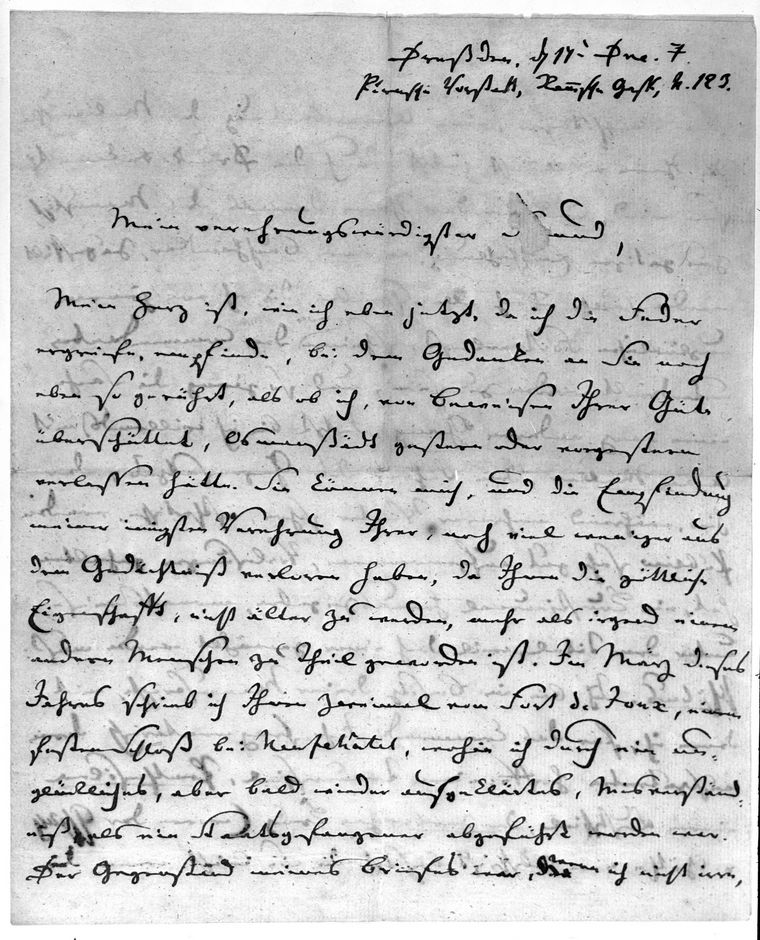 Dreßden, d 17t Dec. 7.
Pirnsche Vorstadt, Rammsche Gasse, N. 123.
Mein verehrungswürdigster Freund,
Mein Herz ist, wie ich eben jetzt, da ich die Feder
ergreife, empfinde, bei dem Gedanken an Sie noch
eben so gerührt, als ob ich, von Beweisen Ihrer Güte
überschüttet, Osmanstädt gestern oder vorgestern
verlassen hätte. Sie können mich, und die Empfindung
meiner innigsten Verehrung Ihrer, noch viel weniger aus
dem Gedächtniß verloren haben, da Ihnen die göttliche
Eigenschaft, nicht älter zu werden, mehr als irgend einem
andern Menschen zu Theil geworden ist. Im März dieses
Jahres schrieb ich Ihnen zweimal vom Fort de Joux, einem
festen Schloß bei Neufchâtel, wohin ich durch ein un-
glückliches, aber bald wieder aufgeklärtes, Misverständ-
niß, als ein Staatsgefangener abgeführt worden war.
Der Gegenstand meines Briefes war, wenn ich nicht irre,